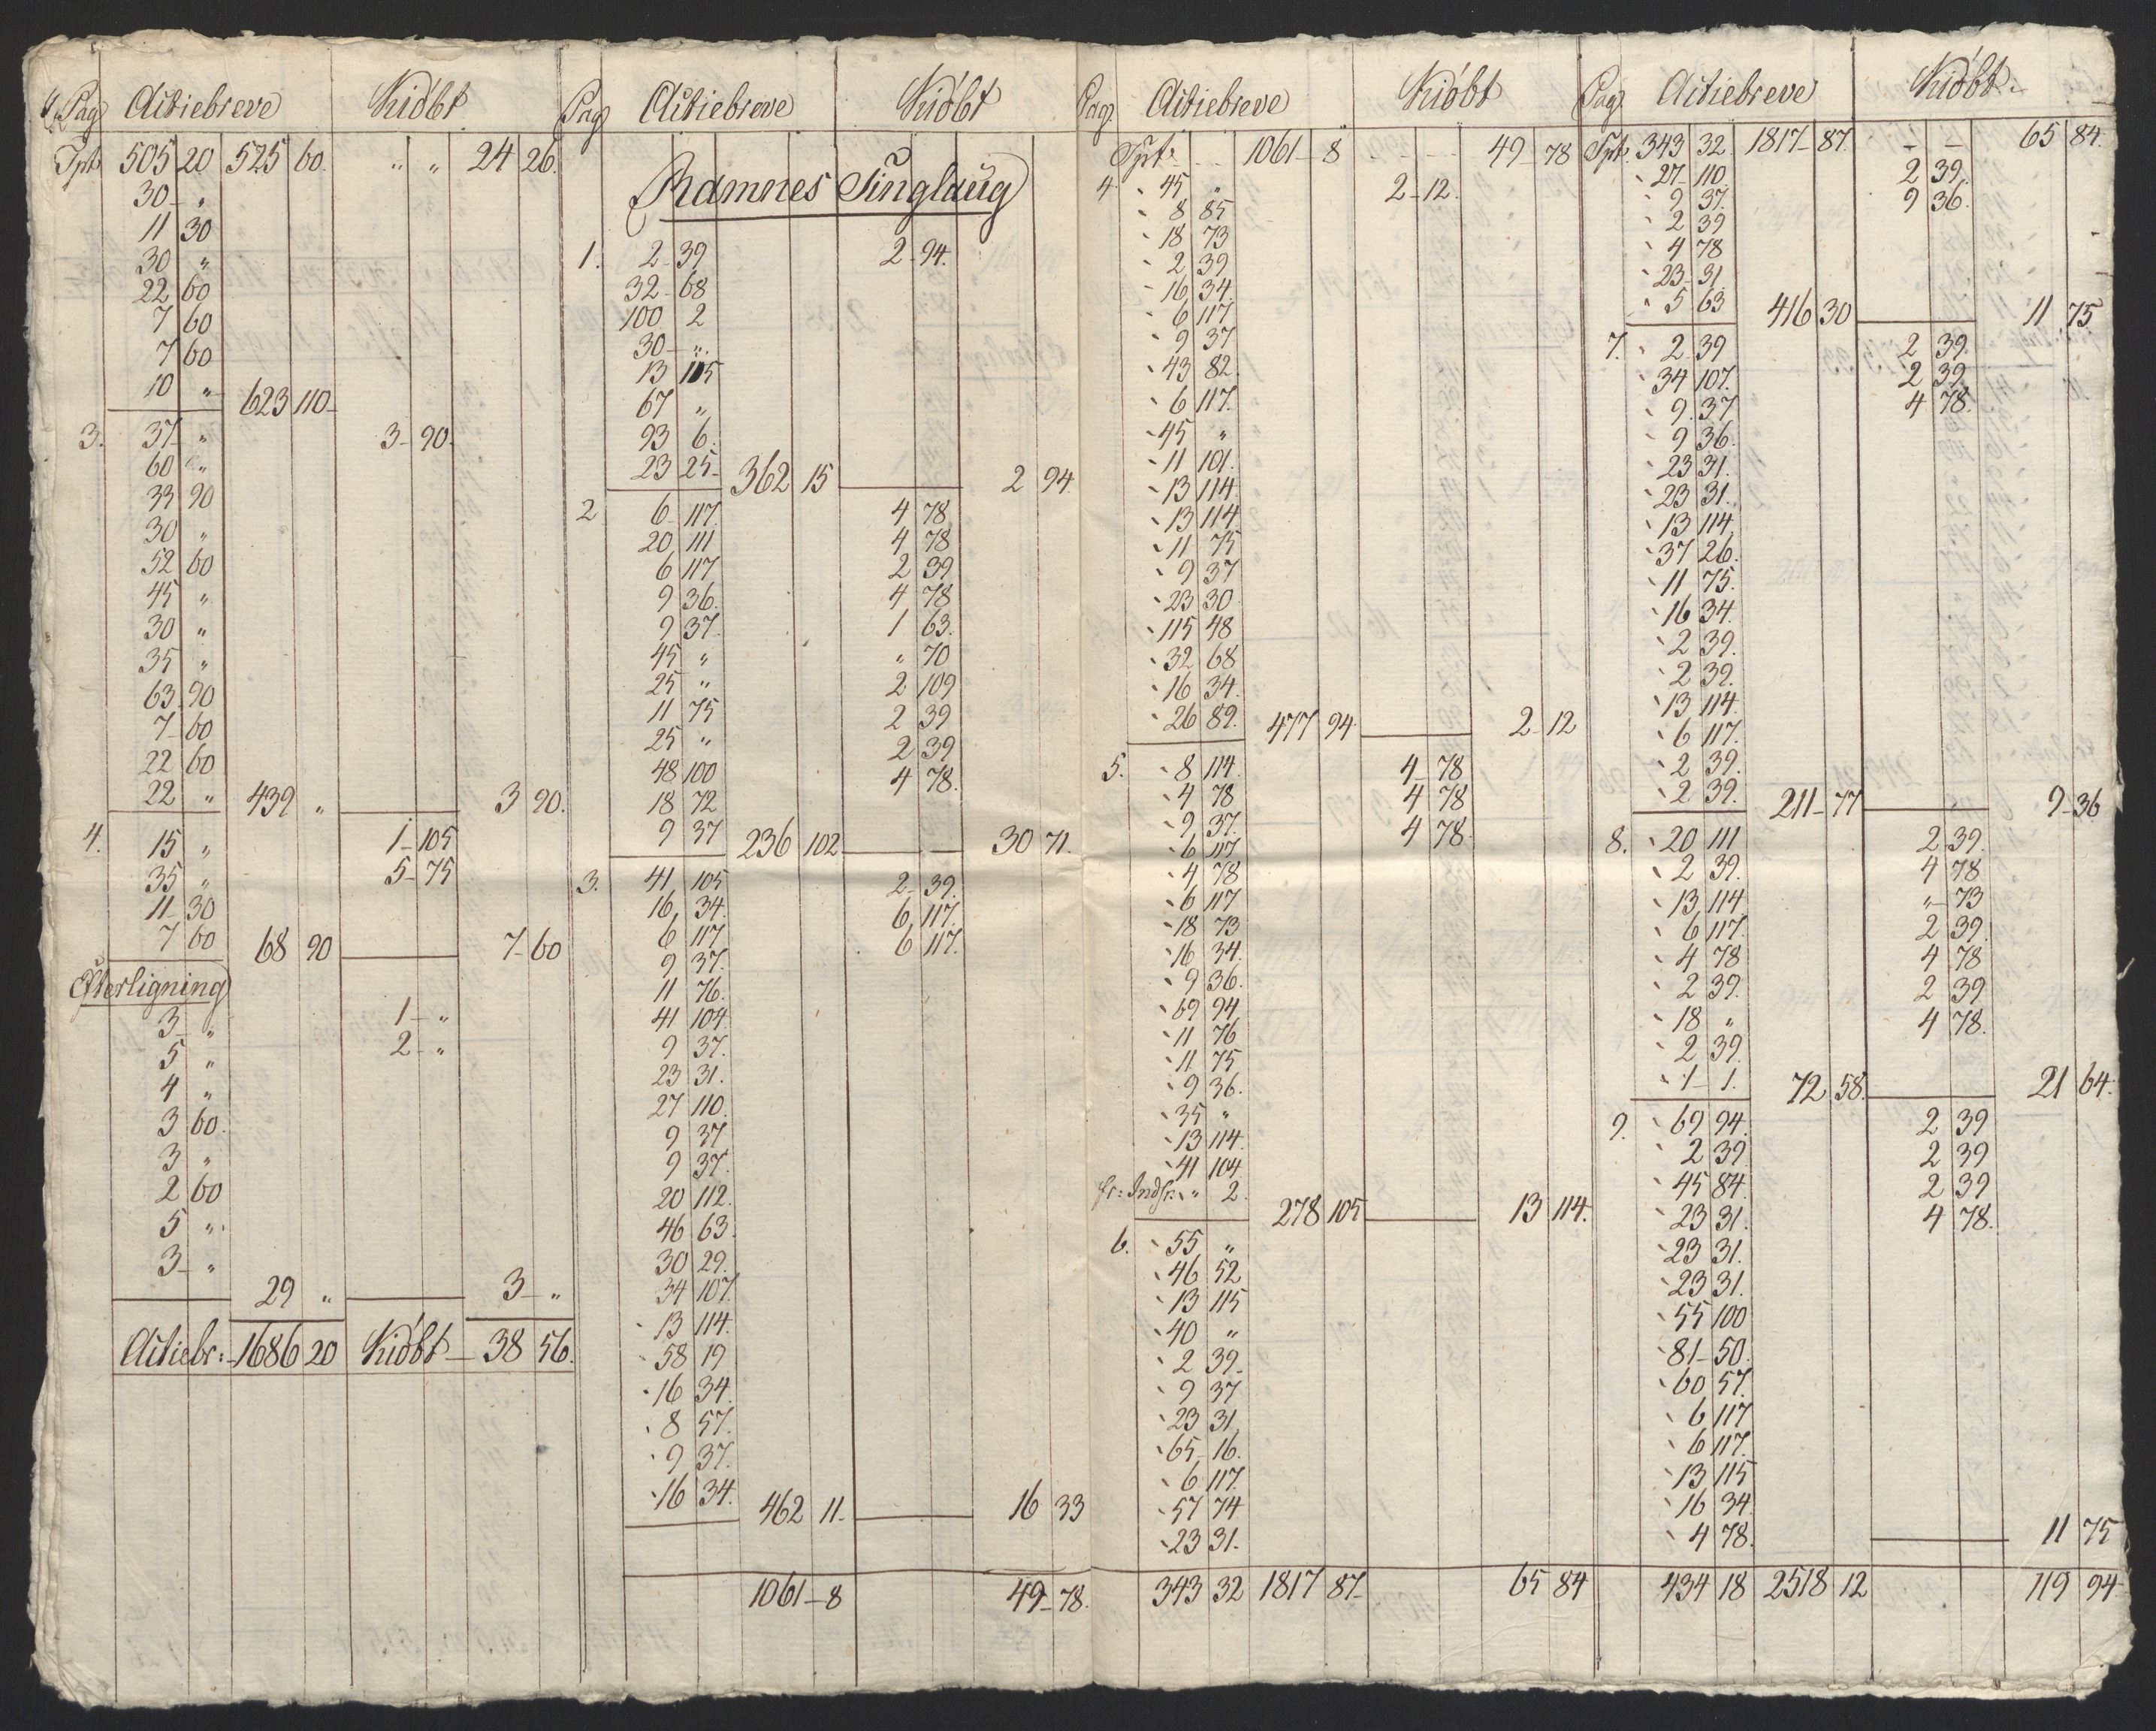 Pag Actiebreve Kiöbt
Tpt 505 20 525 60. " " 24 26.
30 "
11 30
30 "
22 60
7 60
7 60
10 " 623 110
3. 37 " 3 90.
60 "
33 90
30 "
52 60
45 "
30 "
35 "
63 90
7 60
22 60
22 " 439 " 3 90.
4. 15 " 1 105
35 " 5 75
11 30
7 60 68 90 7 60
Efterligning
3 " 1 "
5 " 2 "
4 "
3 60.
3 "
2 60
5 "
3 "
29 " 3 "
Actiebr: 1686 20 Kiöbt 38 56.
Pag Actiebreve Kiöbt
Ramnes Tinglaug
1. 2 39 2 94.
32 68
100 2
30 "
13 105
67 "
93 6.
23 25 362 15 2 94
2 6 117. 4 78
20 111 4 78
6 117 2 39
9 36. 4 78
9 37. 1 63.
45 " " 70
25 " 2 109
11 75 2 39
25 " 2 39
48 100 4 78.
18 72
9 37 236 102 30 71.
3. 41 105 2 39.
16 34. 6 117.
6 117 6 117.
9 37.
11 76.
41 104.
9 37.
23 31.
27 110.
9 37
9 37.
20 112.
46 63.
30 29.
34 107.
13 114.
58 19
16 34.
8 57.
9 37.
16 34. 462 11 16 33
1061 8 49 78.
Pag. Actiebreve Kiöbt
Tpt. 1061 8 49 78
4. 45 " 2 12.
8 85
18 73
2 39
16 34.
6 117
9 37
43 82.
6 117.
45 "
11 101.
13 114.
13 114.
11 75
9 37
23 30
115 48
32 68
16 34.
26 89. 477 94. 2 12
5. 8 114. 4 78
4 78 4 78
9 37. 4 78.
6 117
4 78
6 117
18 73
16 34.
9 36.
69 94
11 76
11 75
9 36.
35 "
13 114.
41 104
" 2. 278 105 13 114.
6. 55 "
46 52
13 115
40 "
2 39
9 37
23 31.
65 16.
6 117.
57 74
23 31.
343 32 1817 87 65 84
Pag. Actiebreve Kiöbt
Tpt. 343 32 1817 87. 65 84.
27 110. 2 39.
9 37. 9 36.
2 39
4 78
23 31.
5 63 416 30 11 75.
7. 2 39 2 39.
34 107. 2 39.
9 37 4 78.
9 36.
23 31.
23 31.
13 114.
37 26.
11 75.
16 34.
2 39.
2 39.
13 114.
6 117.
2 39.
2 39. 211 77 9 36
8. 20 111 2 39.
2 39. 4 78
13 114 " 73
6 117. 2 39.
4 78 4 78
2 39. 2 39
18 " 4 78.
2 39.
1 1. 72 58. 21 64.
9. 69 94. 2 39
2 39 2 39
45 84. 2 39
23 31. 4 78.
23 31.
23 31.
55 100
81 50.
60 57.
6 117
6 117.
13 115
16 34.
4 78. 11 75
434 18 2518 12 119 94